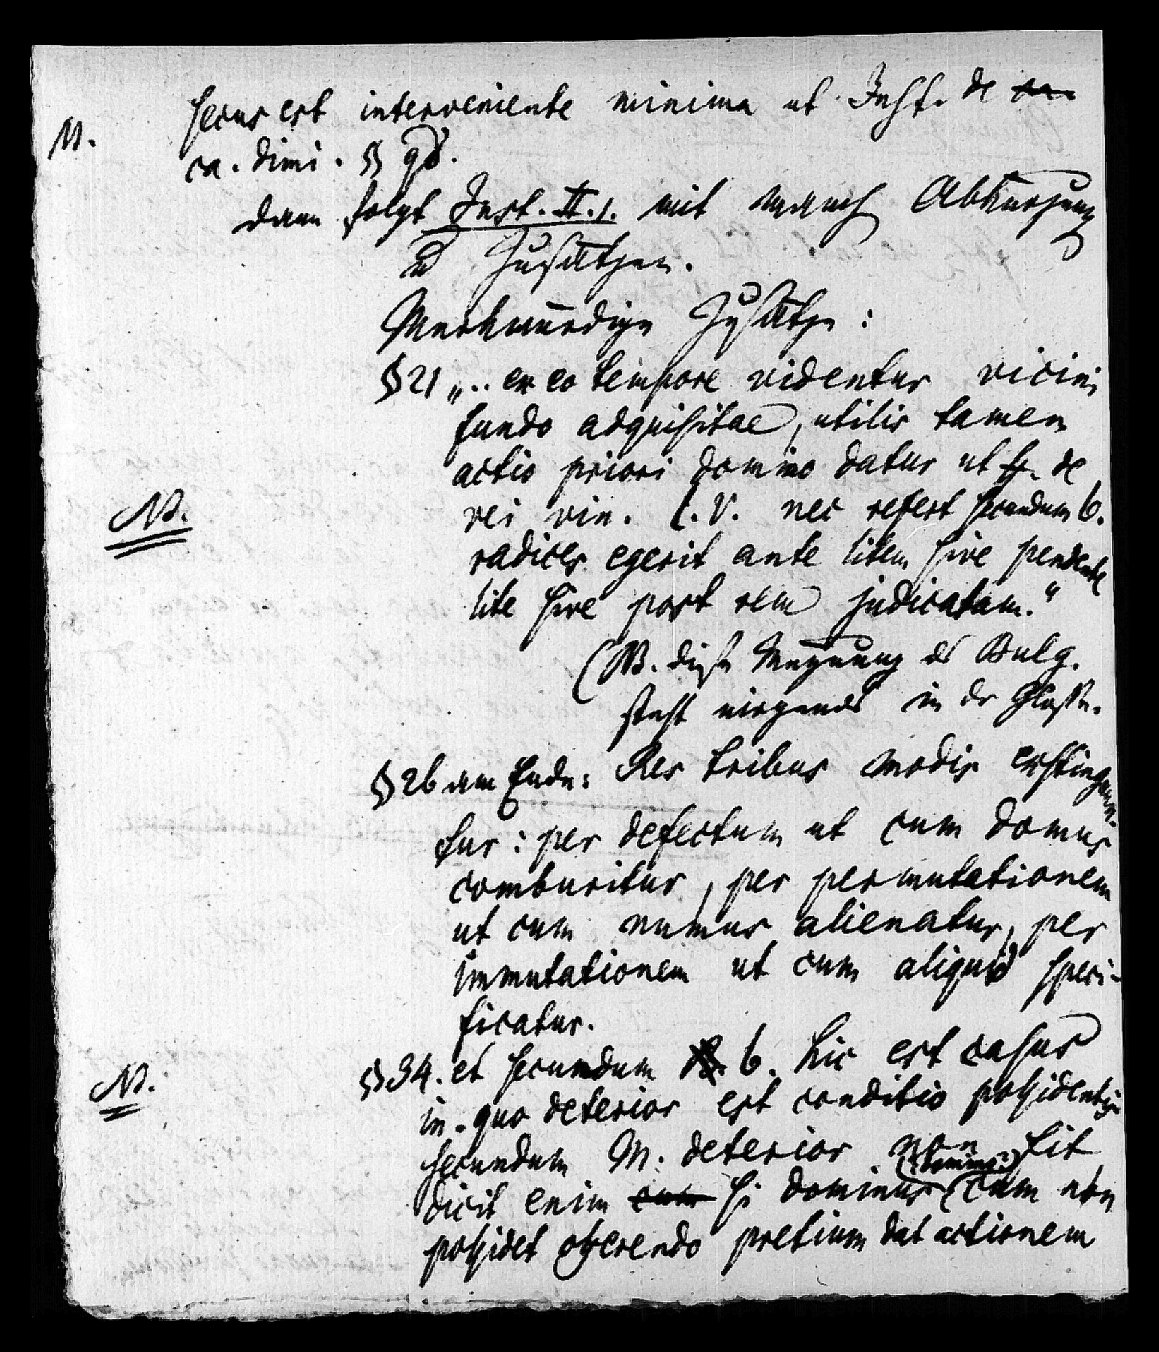 secus est interveniente minima ut Inst. de ca.
M.
ca. dimi. § qd.
dann folgt Inst. II. 1. mit manch Abkürzung
u Zusätzen.
Merkwürdige Zusätze:
§ 21 „.. ex eo tempore videntur vicini
fundo adquisitae, utilis tamen
actio priori domino datur ut ff. de
NB.
rei vin. l. V. nec refert secundum b.
radices egerit ante litem sive pendente
lite sive post rem judicatam.“
(NB. diese Meynung des Bulg.
steht nirgends in der Glosse.
§ 26 am Ende: Res tribus modis extingwun-
tur: per defectum ut cum domus
comburitur, per permutationem
ut cum numus alienatur, per
immutationem ut cum aliquid speci-
ficatur.
NB.
§ 34. et secundum B. b. hic est casus
in quo deterior est conditio possidentis
secundum M. deterior non sit
dicit enim cum si dominus (cum non
possidet offerendo pretium dat actionem